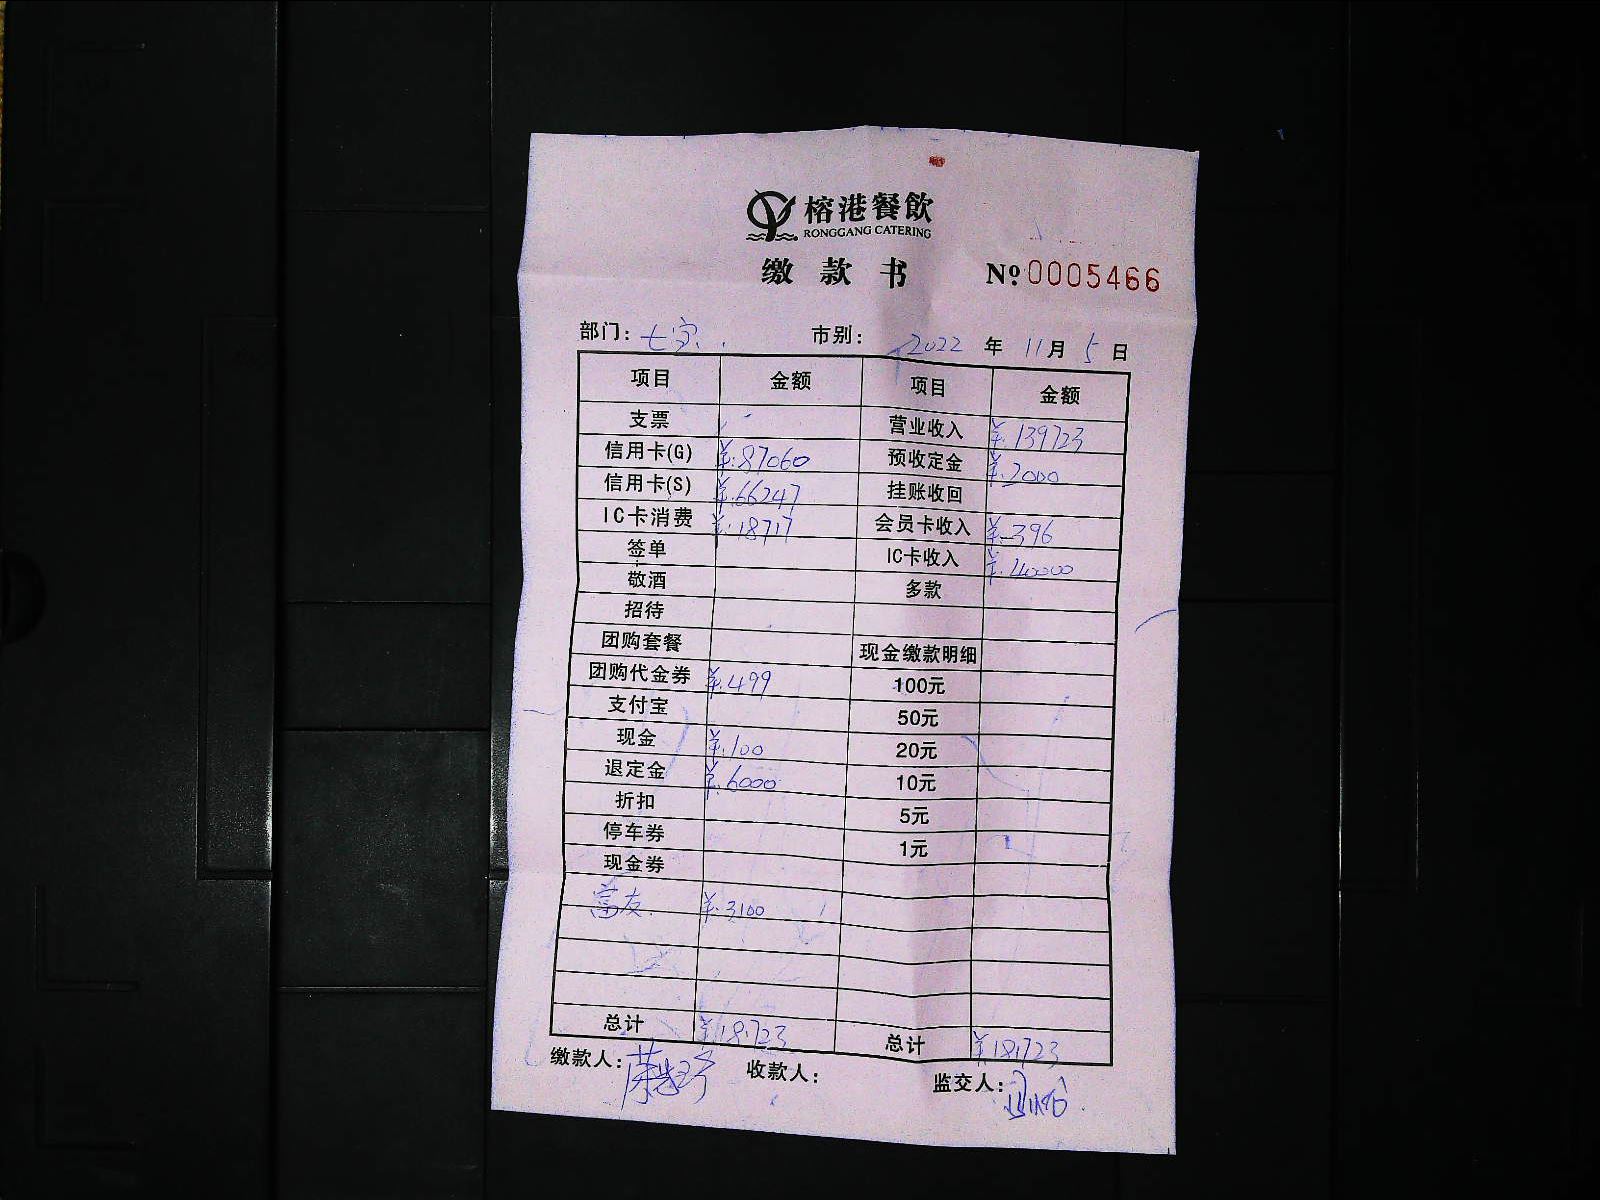 榕港餐飲
RONGGANG CATERING
缴款书 №0005466
部门: 市别: 2022年11月5日
项目 金额 项目 金额
支票 营业收入 ¥.139723
信用卡(G) ¥.87060 预收定金 ¥.2000
信用卡(S) ¥.66247 挂账收回
IC卡消费 ¥.18717 会员卡收入 ¥.396
签单 IC卡收入 ¥.40000
敬酒 多款
招待
团购套餐 现金缴款明细
团购代金券 ¥.499 100元
支付宝 50元
现金 ¥.100 20元
退定金 ¥.6000 10元
折扣 5元
停车券 1元
现金券
富友. ¥.3100
总计 ¥181723 总计 ¥181723
缴款人: 收款人: 监交人: